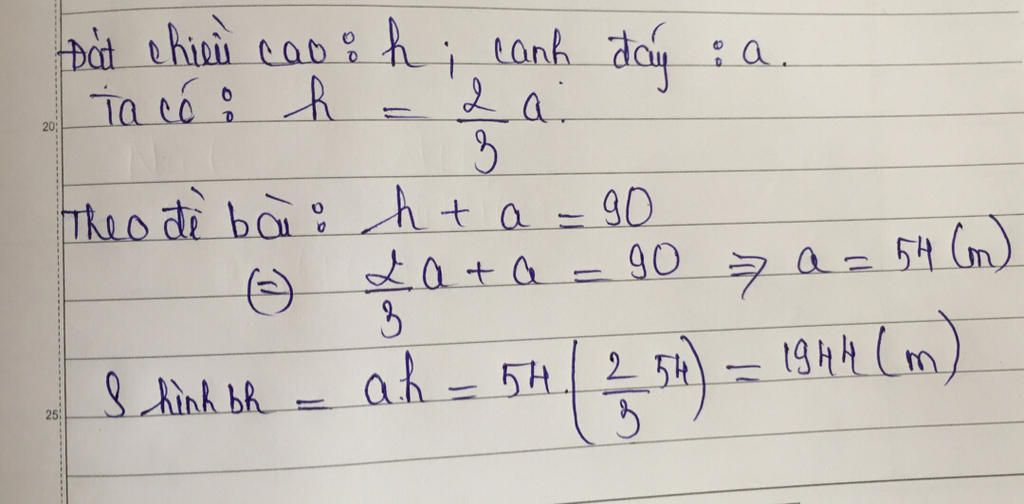 Đặt chiều cao : h ; cạnh đáy : a.
Ta có : h = 2/3 a.
20
Theo đề bài : h + a = 90
(=) 2/3 a + a = 90 => a = 54 (m)
S hình bh = a.h = 54.(2/3 54) = 1944 (m)
25